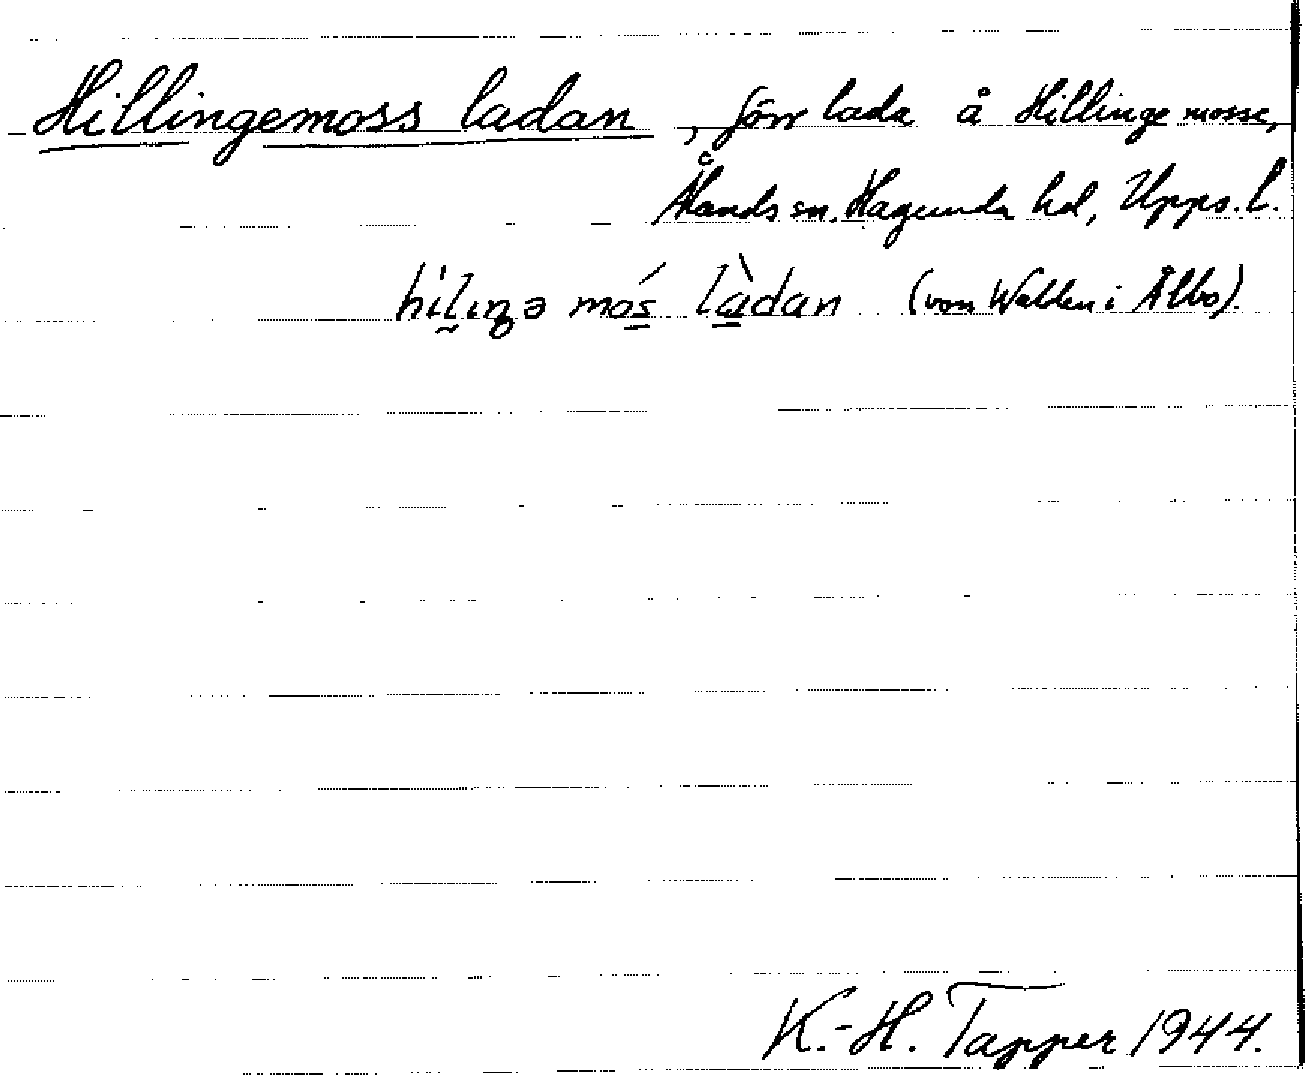 Hillingemoss ladan, förr lada å Hillinge mosse,
Ålands sn. Hagunda hd, Upps. l.
hi̍l̰ıŋə mós̲ là̲dan (von Wallden i Ålbo).
K.-H. Tapper 1944.